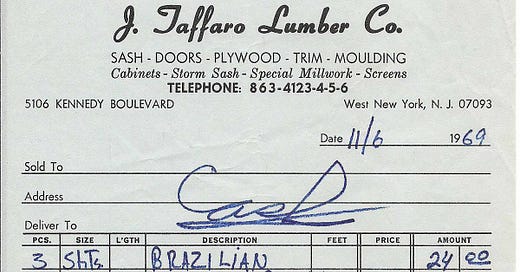 J. Taffaro Lumber Co.
SASH - DOORS - PLYWOOD - TRIM - MOULDING
Cabinets - Storm Sash - Special Millwork - Screens
TELEPHONE: 863-4123-4-5-6
5106 KENNEDY BOULEVARD West New York, N. J. 07093
Date 11/6 1969
Sold To
Address Cash
Deliver To
PCS. SIZE L'GTH DESCRIPTION FEET PRICE AMOUNT
3 Shts BRAZILIAN 24 00